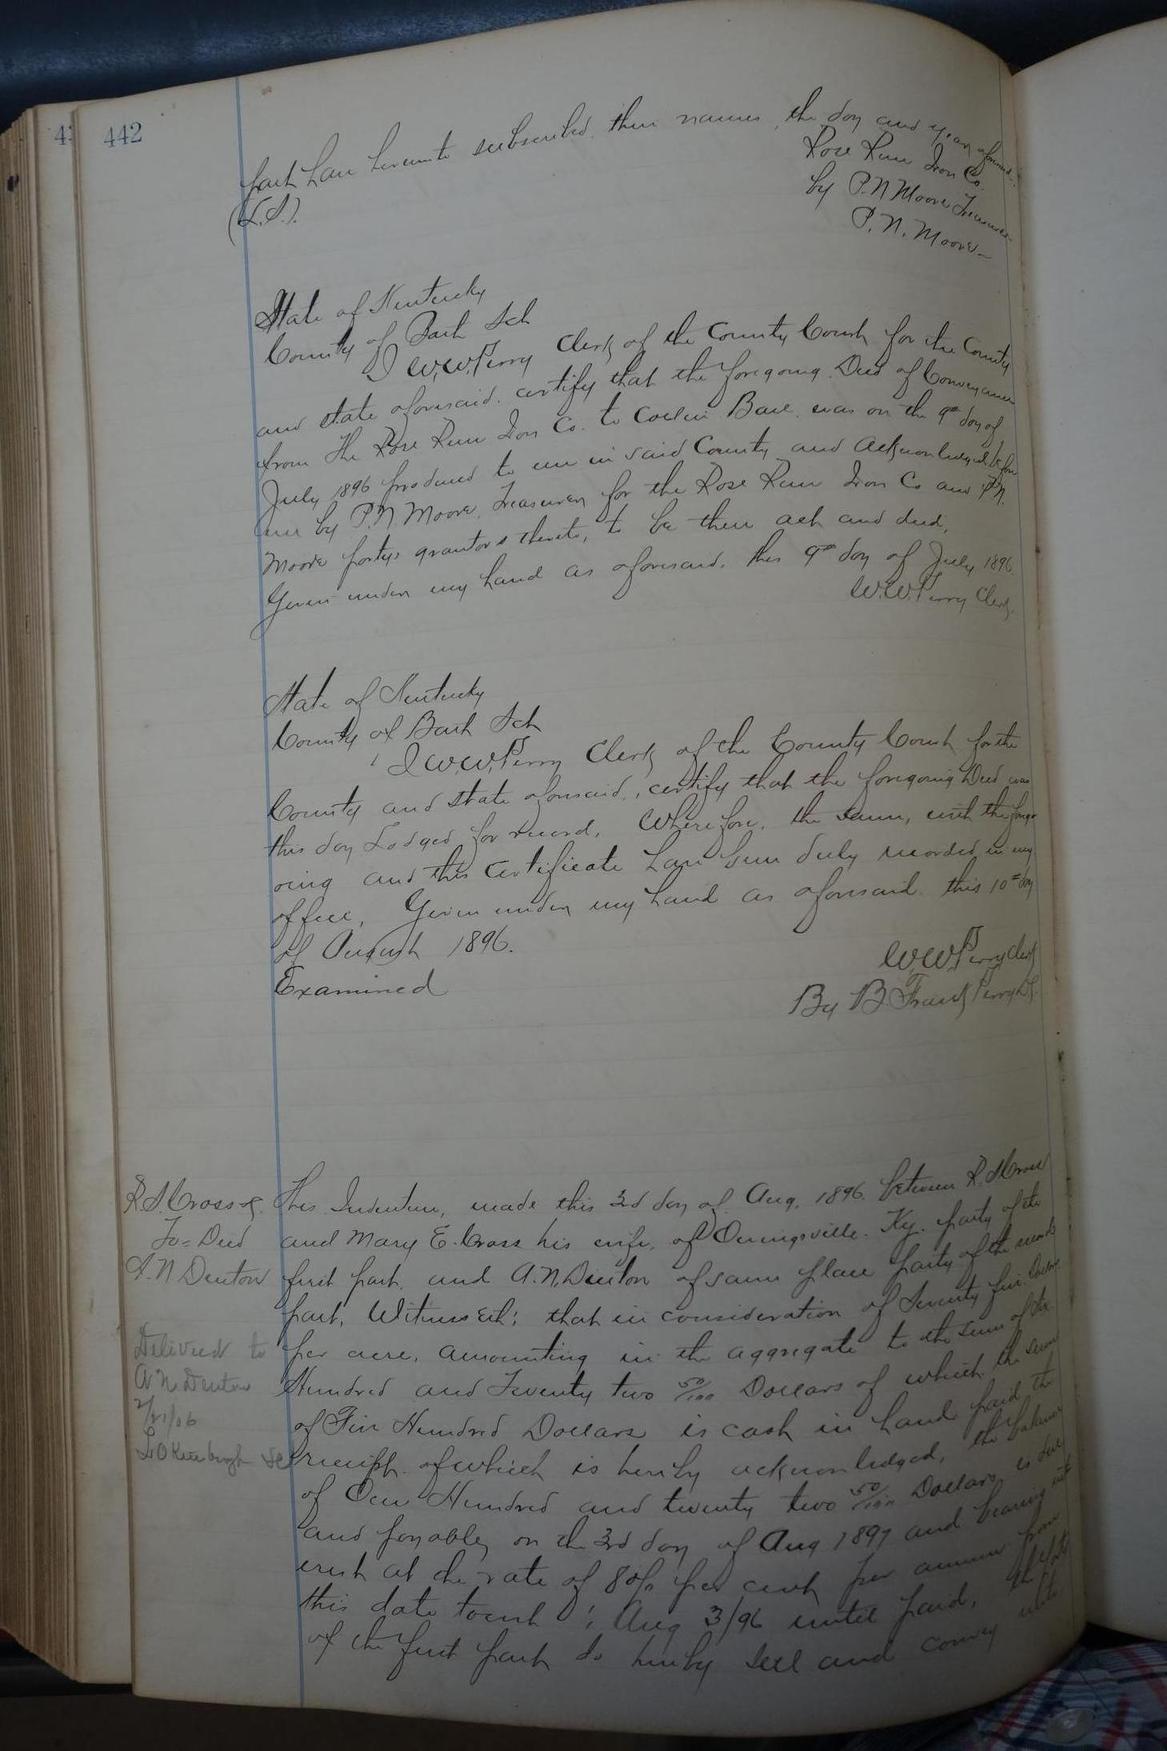 442
part have hereunto subscribed their names, the day and year aforesaid.
(L.S.)
Rose Run Iron Co.
by P.N. Moore Treasurer
P.N. Moore
State of Kentucky
County of Bath Sct
I W.W. Perry Clerk of the County Court for the County
and state aforesaid. certify that the foregoing Deed of Conveyance
from The Rose Run Iron Co. to was on the 9th day of
July 1896 produced to me in said County and acknowledged before
me by P.N. Moore, Treasurer for the Rose Run Iron Co and P.N.
Moore grantors thereto, to be their act and deed,
Given under my hand as aforesaid, this 9th day of July 1896
W.W. Perry Clerk.
State of Kentucky
County of Bath Sct
I W.W. Perry Clerk of the County Court for the
County and State aforesaid, certify that the foregoing Deed was
this day Lodged for record, Wherefore, the same, with the foregoing
and this certificate have been duly recorded in my
office, Given under my hand as aforesaid this 10th day
of August 1896.
Examined
W.W. Perry Clerk
By B. Frank Perry D.C.
R.S. Cross &
To = Deed
A.N. Denton
This Indenture, made this 3rd day of Aug, 1896. between R.S. Cross
and Mary E. Cross his wife, of Owingsville. Ky. party of the
first part, and A.N. Denton of same place party of the second
part, Witnesseth; that in consideration of Seventy five Dollars
per acre, amounting in the aggregate to the sum of Six
Hundred and Twenty two 50/100 Dollars of which the sum
of Five Hundred Dollars is cash in hand paid, the
receipt of which is hereby acknowledged, the balance
of One Hundred and twenty two 50/100 Dollars, is due
and payable, on the 3rd day of Aug 1897 and bearing int
erest at the rate of 8 o/o per cent per annum from
this date to wit; Aug 3/96 until paid,
of the first part do hereby sell and convey unto
Delivered to
A.N. Denton
2/21/06